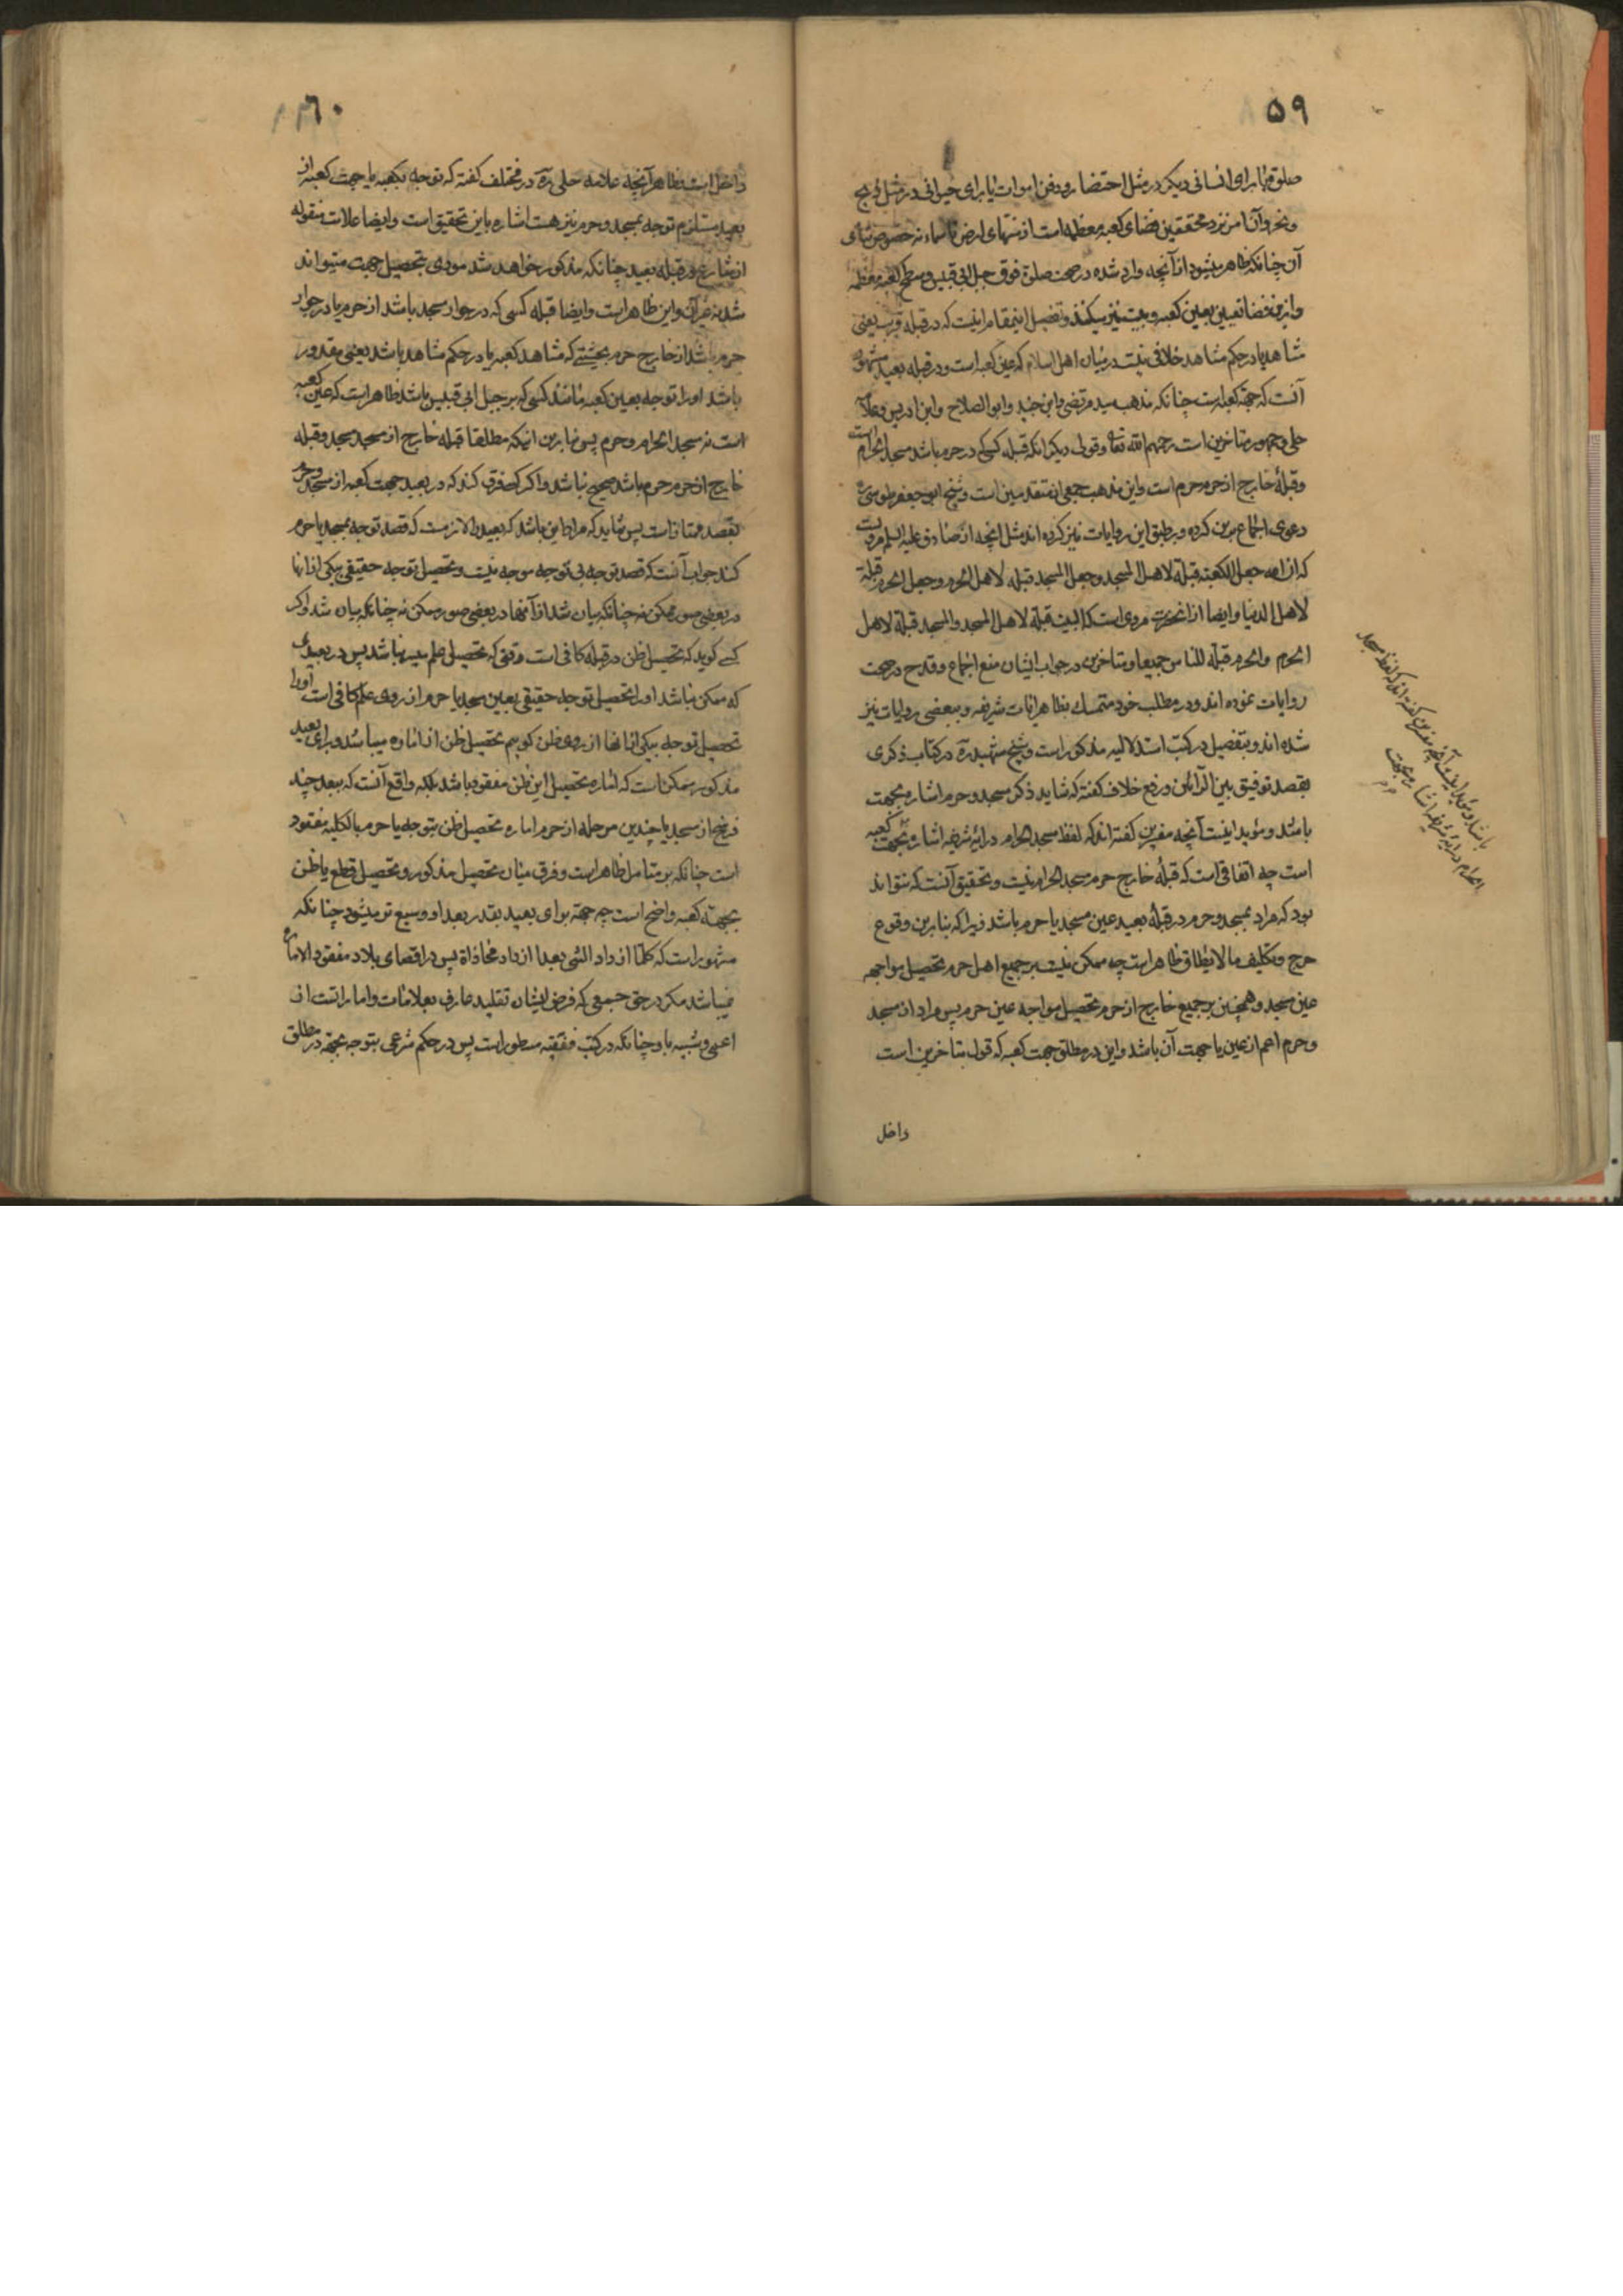 ۵۹
صلوة یا برای انسانی دیگر در مثل احتضار و دفن اموات یا برای حیوانی در مثل ذبح
و نحر و آنا من نزد محققین فضای کعبه معظمه است از منتهای ارض تا سماء نه خصوص بنای
آن چنانکه ظاهر میشود از آنچه وارد شده در صحت صلوة فوق جبل ابی قبیس و سطح کعبه معظمه
و ازین فضا تعبیر بعین کعبه و بیت نیز میکنند و تفصیل اینمقام اینست که در قبله قریب یعنی
مشاهد یا در حکم مشاهد خلافی نیست در میان اهل اسلام که عین کعبه است و در قبله بعید مشهور
آنست که جهة کعبه است چنانکه مذهب سید مرتضی و ابن جنید و ابو الصلاح و ابن ادریس و علامه
حلی و جمهور متاخرین است رحمهم الله تعالی و قولی دیگر آنکه قبله کسی که در حرم باشد مسجد الحرام است
و قبلهٔ خارج از حرم حرم است و این مذهب جمعی از متقدمین است و شیخ ابو جعفر طوسی ره
دعوی اجماع برین کرده و بر طبق این روایات نیز کرده اند مثل آنچه از صادق علیه السلم مرویست
که ان الله جعل الکعبة قبلة لاهل المسجد و جعل المسجد قبلة لاهل الحرم و جعل الحرم قبلة
لاهل الدنیا و ایضا از انحضرت مروی است که البیت قبلة لاهل المسجد و المسجد قبلة لاهل
الحرم و الحرم قبلة للناس جمیعا و متاخرین در جواب ایشان منع اجماع و قدح در صحت
روایات نموده اند و در مطلب خود متمسک بظاهر ایات شریفه و ببعضی روایات نیز
شده اند و بتفصیل در کتب استدلالیه مذکور است و شیخ شهید ره در کتاب ذکری
بقصد توفیق بین الرائین و رفع خلاف گفته که شاید ذکر مسجد و حرم اشاره بجهت
باشد و مؤید اینست آنچه مفسرین گفته اند که لفظ مسجد الحرام در ایهٔ شریفه اشاره بجهت کعبه
است چه اتفاقی است که قبلهٔ خارج حرم مسجد الحرام نیست و تحقیق آنست که نتواند
بود که مراد بمسجد و حرم در قبلهٔ بعید عین مسجد یا حرم باشد زیرا که بنا برین وقوع
حرج و تکلیف ما لا یطاق ظاهر است چه ممکن نیست بر جمیع اهل حرم تحصیل مواجهه
عین مسجد و همچنین بر جمیع خارج از حرم تحصیل مواجهه عین حرم پس مراد از مسجد
و حرم اعم از عین یا جهت آن باشد و این در مطلق جهت کعبه که قول متاخرین است
داخل
باشد و مؤید اینست آنچه مفسرین گفته اند که لفظ مسجد
الحرام در ایهٔ شریفه اشاره بجهت
۶۰
داخل است و ظاهر آنچه علامه حلی ره در مختلف گفته که توجه بکعبه یا جهت کعبه از
بعید مستلزم توجه بمسجد و حرم نیز هست اشاره باین تحقیق است و ایضا علامات منقوله
از شارع در قبله بعید چنانکه مذکور خواهد شد مودی بتحصیل جهت میتواند
شد نه غیر آن و این ظاهر است و ایضا قبله کسی که در جوار مسجد باشد از حرم یا در جوار
حرم باشد از خارج حرم بحیثیتی که مشاهد کعبه یا در حکم مشاهد باشد یعنی مقدور
باشد او را توجه بعین کعبه مانند کسی که بر جبل ابی قبیس باشد ظاهر است که عین کعبه
است نه مسجد الحرام و حرم پس بنا برین اینکه مطلقا قبله خارج از مسجد مسجد و قبله
خارج از حرم حرم باشد صحیح نباشد و اگر کسی فرق کند که در بعید جهت کعبه از مسجد و حرم
بقصد ممتاز است پس شاید که مراد این باشد که بعید را لازمست که قصد توجه بمسجد یا حرم
کند جواب آنست که قصد توجه بی توجه موجه نیست و تحصیل توجه حقیقی بیکی از انها
در بعضی صور ممکن نه چنانکه بیان شد از آنها در بعضی صور ممکن نه چنانکه بیان شد و اگر
کسی گوید که تحصیل ظن در قبله کافی است وقتی که تحصیل علم میسر نباشد پس در بعیدی
که ممکن نباشد او را تحصیل توجه حقیقی بعین مسجد یا حرم از روی علم کافی است او را
تحصیل توجه بیکی از انها از روی ظن گویم تحصیل ظن از اماره میباشد و برای بعید
مذکور ممکن است که اماره تحصیل این ظن مفقود باشد بلکه واقع آنست که ببعد چند
فرسخ از مسجد یا چندین مرحله از حرم اماره تحصیل ظن بتوجه یا حرم بالکلیه مفقود
است چنانکه بر متامل ظاهر است و فرق میان تحصیل مذکور و تحصیل قطع یا ظن
بجهت کعبه واضح است چه جهة برای بعید بقدر بعد او وسیع تر میشود چنانکه
مشهور است که کلما ازداد الشی بعدا ازداد محاذاة پس در اقصای بلاد مفقود الاماره
نمیباشد مگر در حق جمعی که فرض ایشان تقلید عارف بعلامات و امارات است از
اعمی و شبیه باو چنانکه در کتب فقهیه مسطور است پس در حکم شرعی بتوجه بجهة در مطلق